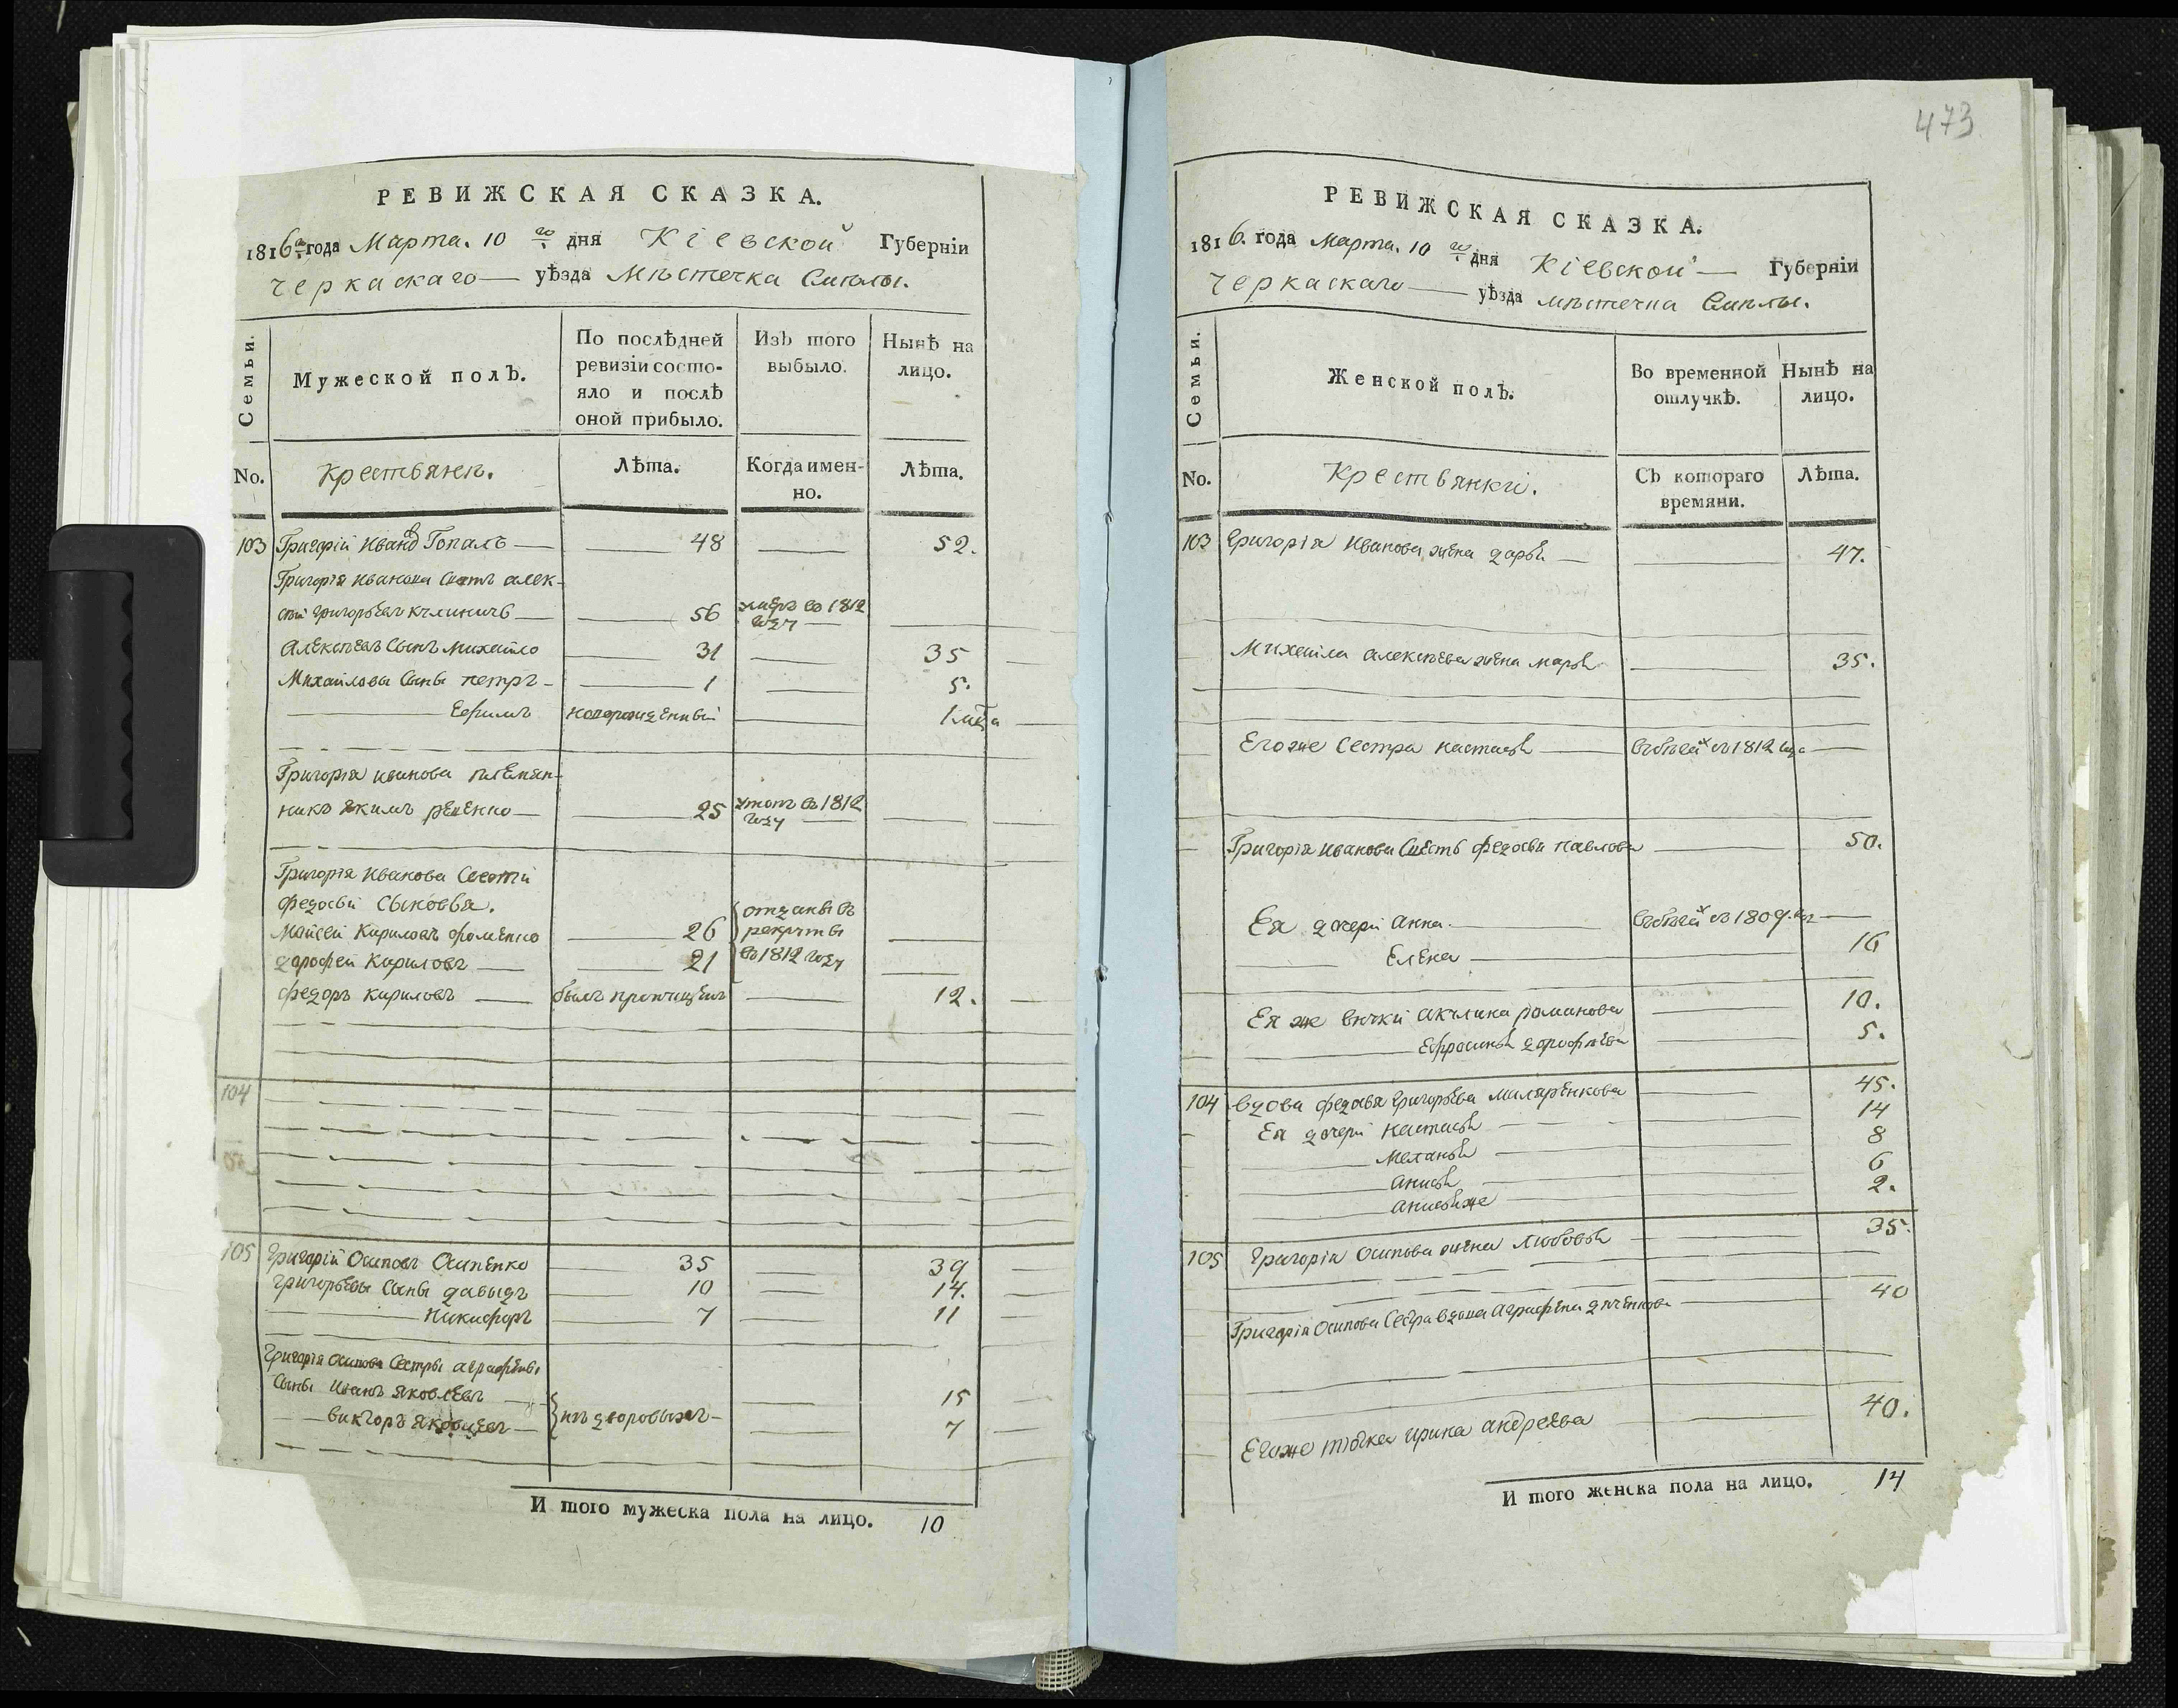 РЕВИЖСКАЯ СКАЗКА.
1816 года Марта. 10 го дня Кіевской Губерніи
Черкаскаго уѣзда Мѣстечка Смѣлы.
Семьи.
Мужеской полъ.
По послѣдней ревизіи состояло и послѣ оной прибыло.
Изъ того выбыло.
Нынѣ на лицо.
No. Крестьянъ. Лѣта. Когда именно. Лѣта.
103 Григорій Иванов Гопалъ 48 52.
Григорія Иванова алек-
сѣй Григорьевъ 56 умеръ въ 1812
году
Алексѣевъ Сынъ Михайло 31 35
Михайловы Сыны петръ 1 5.
Ефимъ новорожденный 1
Григорія иванова племян-
никъ якимъ 25 въ 1812
году
Григорія Иванова
федосьи Сыновья.
Мойсей Кириловъ фоменко 26 отданы въ
рекруты
дорофей Кириловъ 21 въ 1812 году
федоръ кириловъ былъ пропищенъ 12.
104
105 Григорій Осиповъ Осипенко 35 39
Григорьевы Сыны давыдъ 10 14.
Никифоръ 7 11
Григорія Осипова Сестры аграфены
Сыны Иванъ Яковлевъ 15
викторъ Яковлевъ изъ дворовыхъ 7
И того мужеска пола на лицо. 10
473
РЕВИЖСКАЯ СКАЗКА.
1816. года Марта. 10 го дня Кіевской Губерніи
Черкаскаго уѣзда мѣстечка Смѣлы.
Семьи.
Женской полъ.
Во временной отлучкѣ.
Нынѣ на лицо.
No. Крестьянки. Съ котораго времяни. Лѣта.
103 Григорія Иванова жена дарья 47.
Михайла алексѣева жена марья 35.
Его же Сестра настасья въ бегах съ 1812 года
Григорія Иванова федосья павлова 50.
Ея дочери Анна въ бегах съ 1809. го
Елена 16
Ея же внуки акулина романова 10.
Ефросинья дорофѣева 5.
104 вдова федосья Григорьева Маляренкова 45.
Ея дочери настасья 14
Меланья 8
Анисья 6
анисья же 2.
105 Григорія Осипова жена Любовья 35.
Григорія Осипова Сестра вдова Аграфена 40
Его же тіотка ирина андреева 40.
И того женска пола на лицо. 14